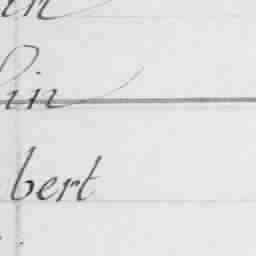 in
lin
bert